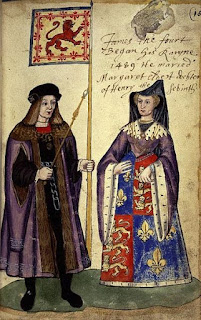 James the fourt
Began his Raigne
1489 He maried
Margaret eldest dochter
of Henry the
sebinth